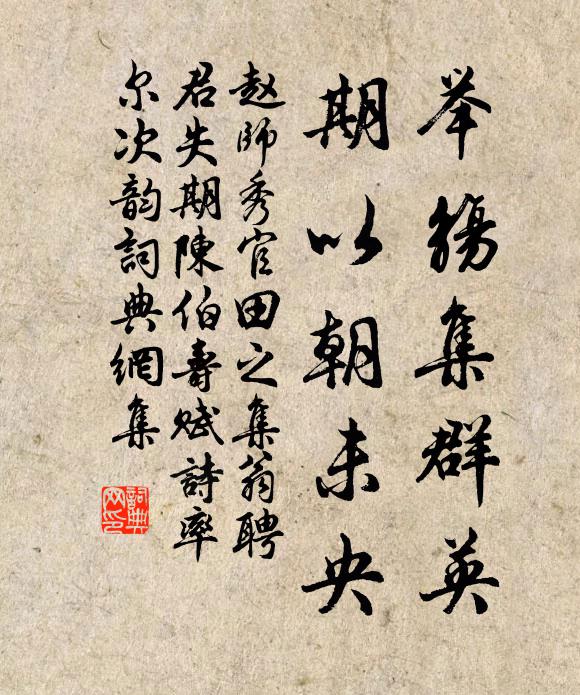 举觞集群英
期以朝未央
赵師秀官田之集翁聘
君失期陳伯壽赋詩率
尔次韵詞典網集
詞典
网印